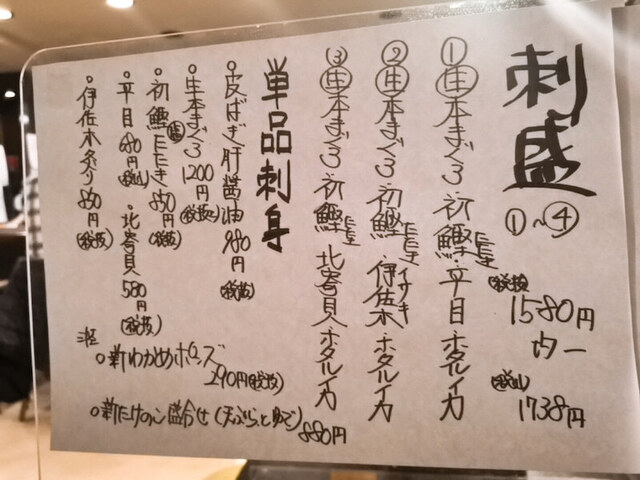 刺盛
①~④
(税抜)
1580円
(税込)
1738円
① 生本まぐろ・初鰹たたき・平目・ホタルイカ
② 生本まぐろ・初鰹たたき・伊佐木イサキ・ホタルイカ
③ 生本まぐろ・初鰹たたき・北寄貝・ホタルイカ
単品刺身
・皮はぎ肝醤油 980円(税抜)
・生本まぐろ 1200円(税抜)
・初鰹たたき 850円(税抜)
・平目 680円(税込)
・北寄貝 580円(税抜)
・伊佐木炙り 850円(税抜)
・新わかめポンズ
290円(税抜)
・新たけのこ盛合せ(天ぷらとゆで)
880円